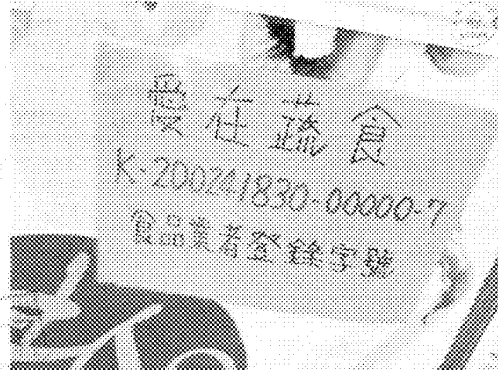 愛在蔬食
K-200241830-00000-7
食品業者登錄字號